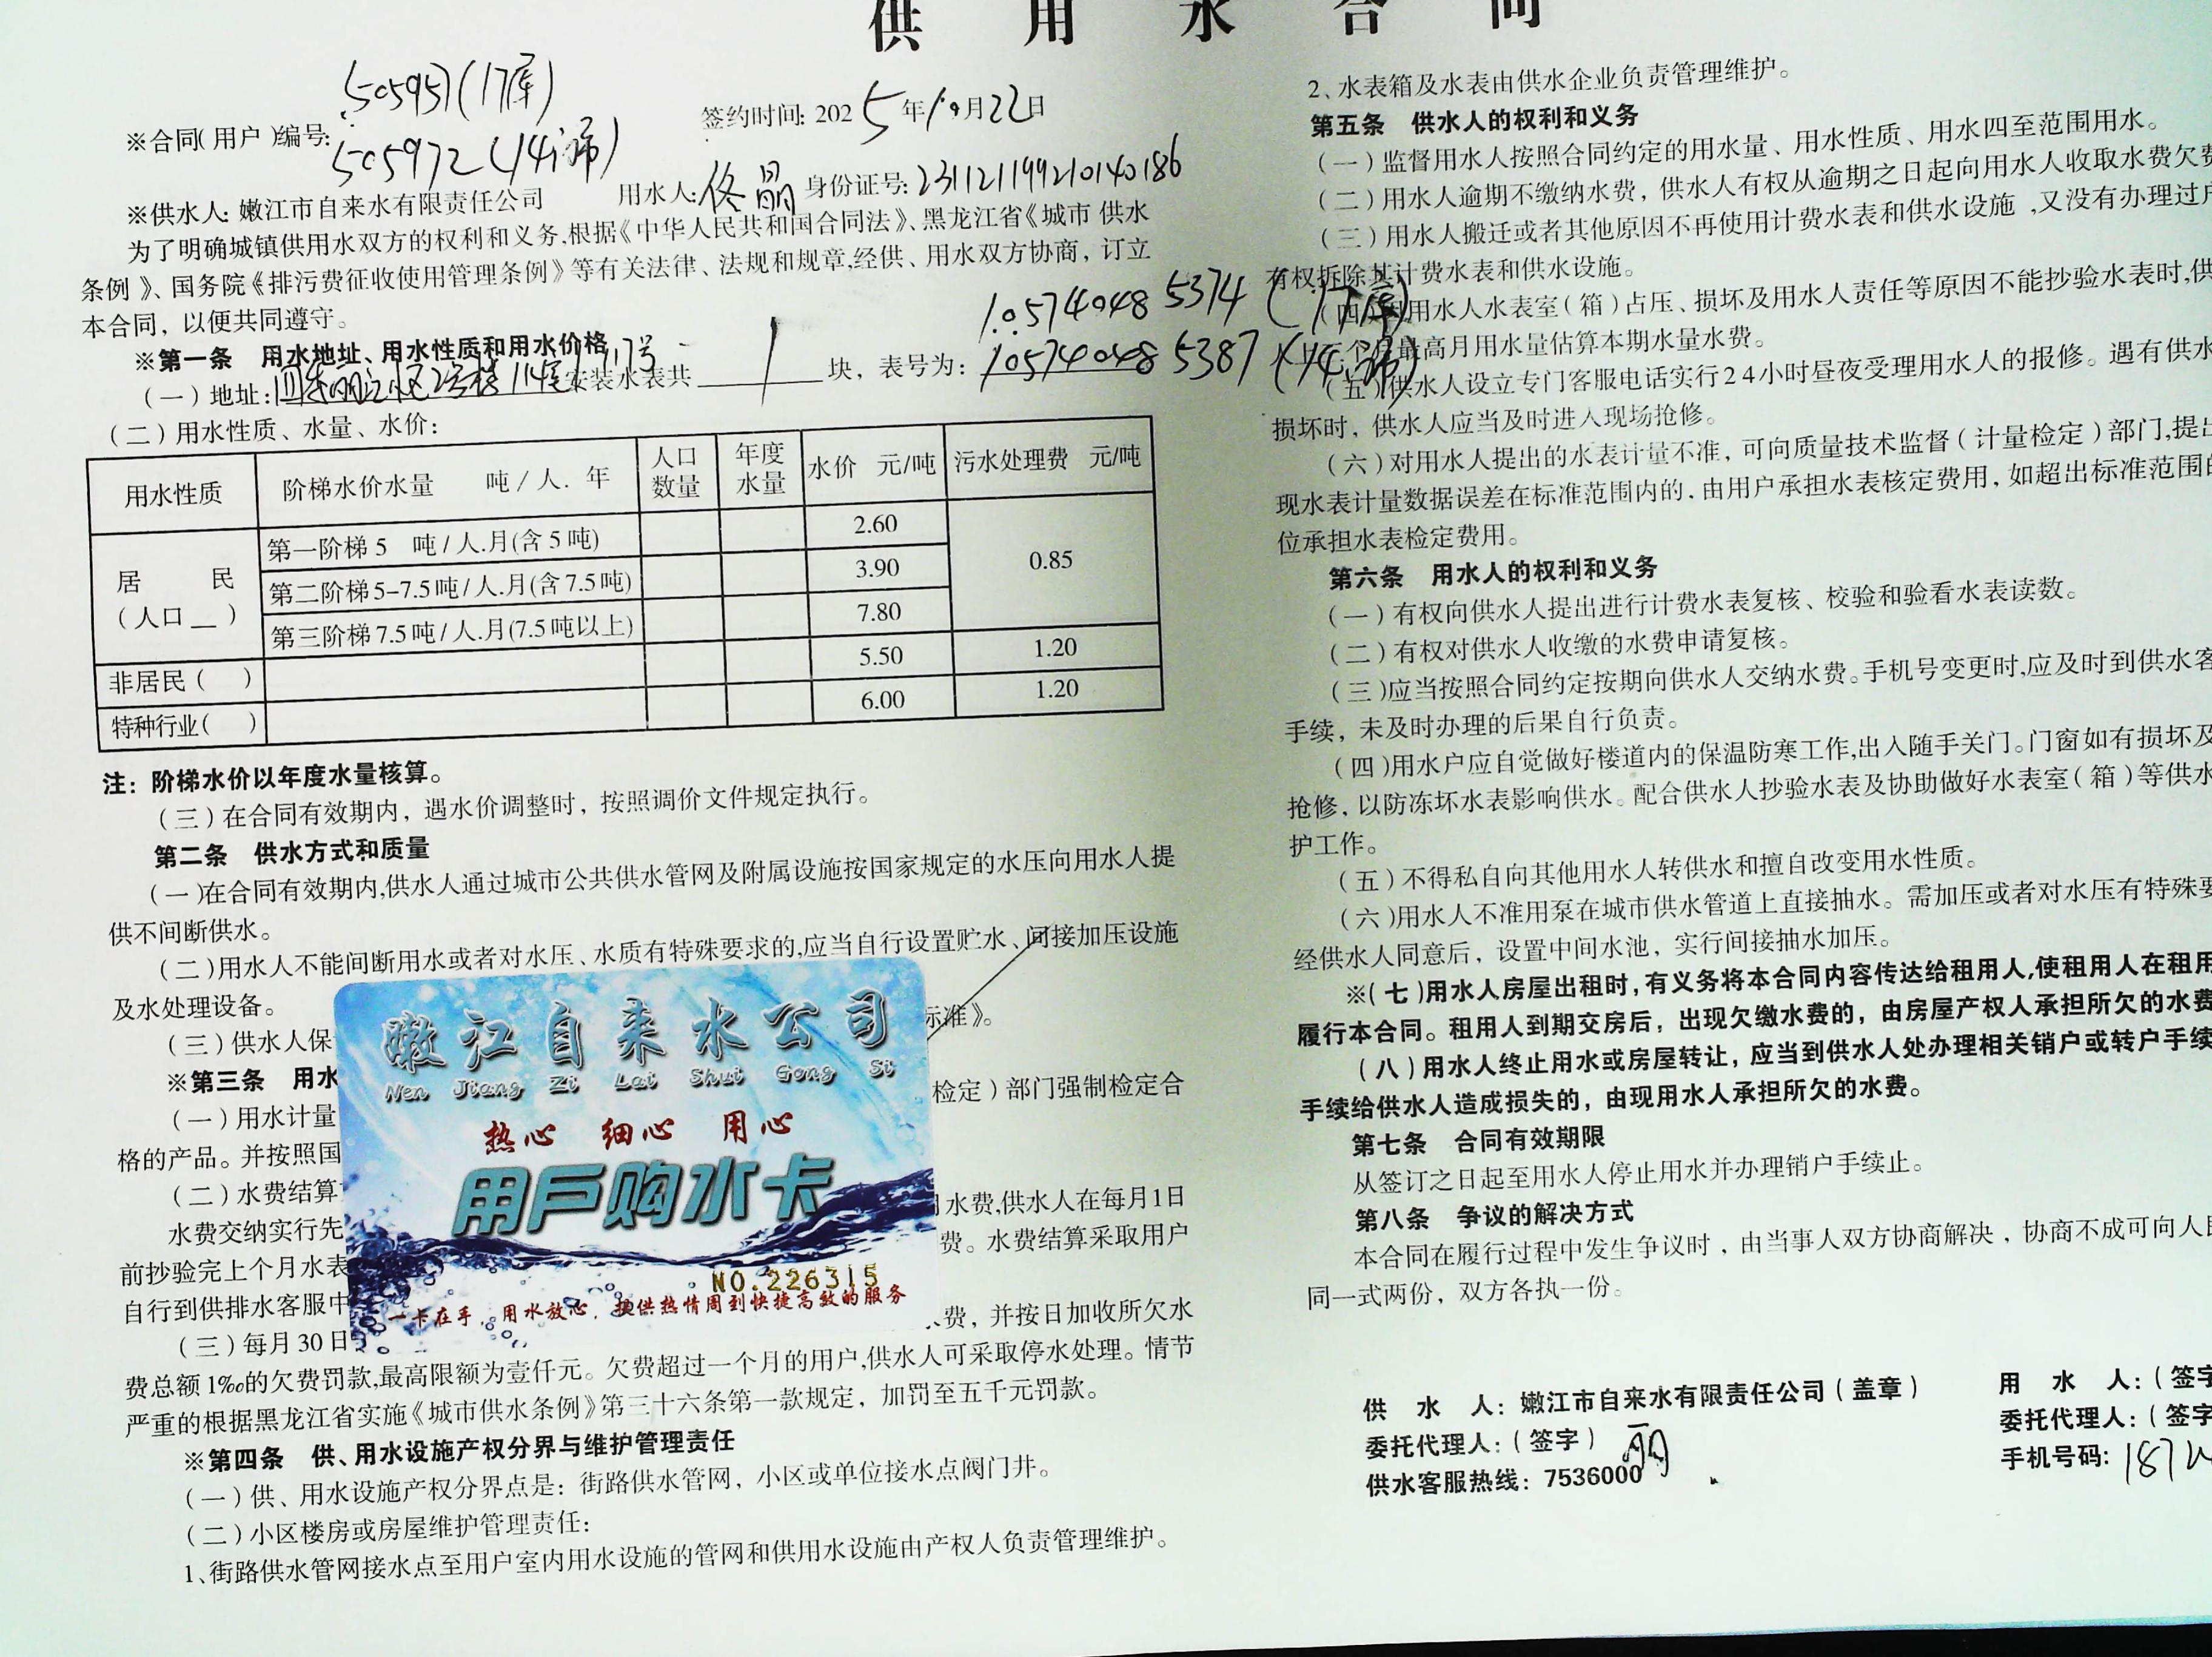 供 用 水 合 同
505951(17库)
※合同(用户)编号:
505972(14)
签约时间: 2025年10月22日
※供水人: 嫩江市自来水有限责任公司 用水人: 佟晶 身份证号: 231121199210140186
为了明确城镇供用水双方的权利和义务,根据《中华人民共和国合同法》、黑龙江省《城市供水
条例》、国务院《排污费征收使用管理条例》等有关法律、法规和规章,经供、用水双方协商，订立
本合同，以便共同遵守。
※第一条 用水地址、用水性质和用水价格
105740485374 (17库)
(一)地址: 小区2号楼 117号 安装水表共 1 块，表号为: 105740485387 (14)
(二)用水性质、水量、水价:
用水性质 阶梯水价水量 吨/人.年 人口数量 年度水量 水价 元/吨 污水处理费 元/吨
居 民 (人口__) 第一阶梯 5 吨/人.月(含5吨) 2.60 0.85
第二阶梯 5-7.5吨/人.月(含7.5吨) 3.90
第三阶梯 7.5吨/人.月(7.5吨以上) 7.80
非居民( ) 5.50 1.20
特种行业( ) 6.00 1.20
注: 阶梯水价以年度水量核算。
(三)在合同有效期内，遇水价调整时，按照调价文件规定执行。
第二条 供水方式和质量
(一)在合同有效期内,供水人通过城市公共供水管网及附属设施按国家规定的水压向用水人提
供不间断供水。
(二)用水人不能间断用水或者对水压、水质有特殊要求的,应当自行设置贮水、间接加压设施
及水处理设备。
(三)供水人保 标准》。
※第三条 用水
(一)用水计量 检定)部门强制检定合
格的产品。并按照国
(二)水费结算
水费交纳实行先 水费,供水人在每月1日
前抄验完上个月水表 费。水费结算采取用户
自行到供排水客服中
(三)每月30日 费，并按日加收所欠水
费总额1‰的欠费罚款,最高限额为壹仟元。欠费超过一个月的用户,供水人可采取停水处理。情节
严重的根据黑龙江省实施《城市供水条例》第三十六条第一款规定，加罚至五千元罚款。
※第四条 供、用水设施产权分界与维护管理责任
(一)供、用水设施产权分界点是: 街路供水管网，小区或单位接水点阀门井。
(二)小区楼房或房屋维护管理责任:
1、街路供水管网接水点至用户室内用水设施的管网和供用水设施由产权人负责管理维护。
嫩江自来水公司
Nen Jiang Zi Lai Shui Gong Si
热心 细心 用心
用戶购水卡
NO.226315
一卡在手，用水放心，提供热情周到快捷高效的服务
2、水表箱及水表由供水企业负责管理维护。
第五条 供水人的权利和义务
(一)监督用水人按照合同约定的用水量、用水性质、用水四至范围用水。
(二)用水人逾期不缴纳水费，供水人有权从逾期之日起向用水人收取水费欠费
(三)用水人搬迁或者其他原因不再使用计费水表和供水设施,又没有办理过户
有权拆除其计费水表和供水设施。
(四)因用水人水表室(箱)占压、损坏及用水人责任等原因不能抄验水表时,供
个月最高月用水量估算本期水量水费。
(五)供水人设立专门客服电话实行24小时昼夜受理用水人的报修。遇有供水
损坏时，供水人应当及时进入现场抢修。
(六)对用水人提出的水表计量不准，可向质量技术监督(计量检定)部门,提出
现水表计量数据误差在标准范围内的,由用户承担水表核定费用，如超出标准范围的
位承担水表检定费用。
第六条 用水人的权利和义务
(一)有权向供水人提出进行计费水表复核、校验和验看水表读数。
(二)有权对供水人收缴的水费申请复核。
(三)应当按照合同约定按期向供水人交纳水费。手机号变更时,应及时到供水客
手续，未及时办理的后果自行负责。
(四)用水户应自觉做好楼道内的保温防寒工作,出入随手关门。门窗如有损坏及
抢修，以防冻坏水表影响供水。配合供水人抄验水表及协助做好水表室(箱)等供水
护工作。
(五)不得私自向其他用水人转供水和擅自改变用水性质。
(六)用水人不准用泵在城市供水管道上直接抽水。需加压或者对水压有特殊要
经供水人同意后，设置中间水池，实行间接抽水加压。
※(七)用水人房屋出租时,有义务将本合同内容传达给租用人,使租用人在租用
履行本合同。租用人到期交房后，出现欠缴水费的，由房屋产权人承担所欠的水费
(八)用水人终止用水或房屋转让，应当到供水人处办理相关销户或转户手续
手续给供水人造成损失的，由现用水人承担所欠的水费。
第七条 合同有效期限
从签订之日起至用水人停止用水并办理销户手续止。
第八条 争议的解决方式
本合同在履行过程中发生争议时，由当事人双方协商解决，协商不成可向人民
同一式两份，双方各执一份。
供 水 人: 嫩江市自来水有限责任公司(盖章)
委托代理人:(签字) 丽
供水客服热线: 7536000
用 水 人:(签字
委托代理人:(签字
手机号码: 187